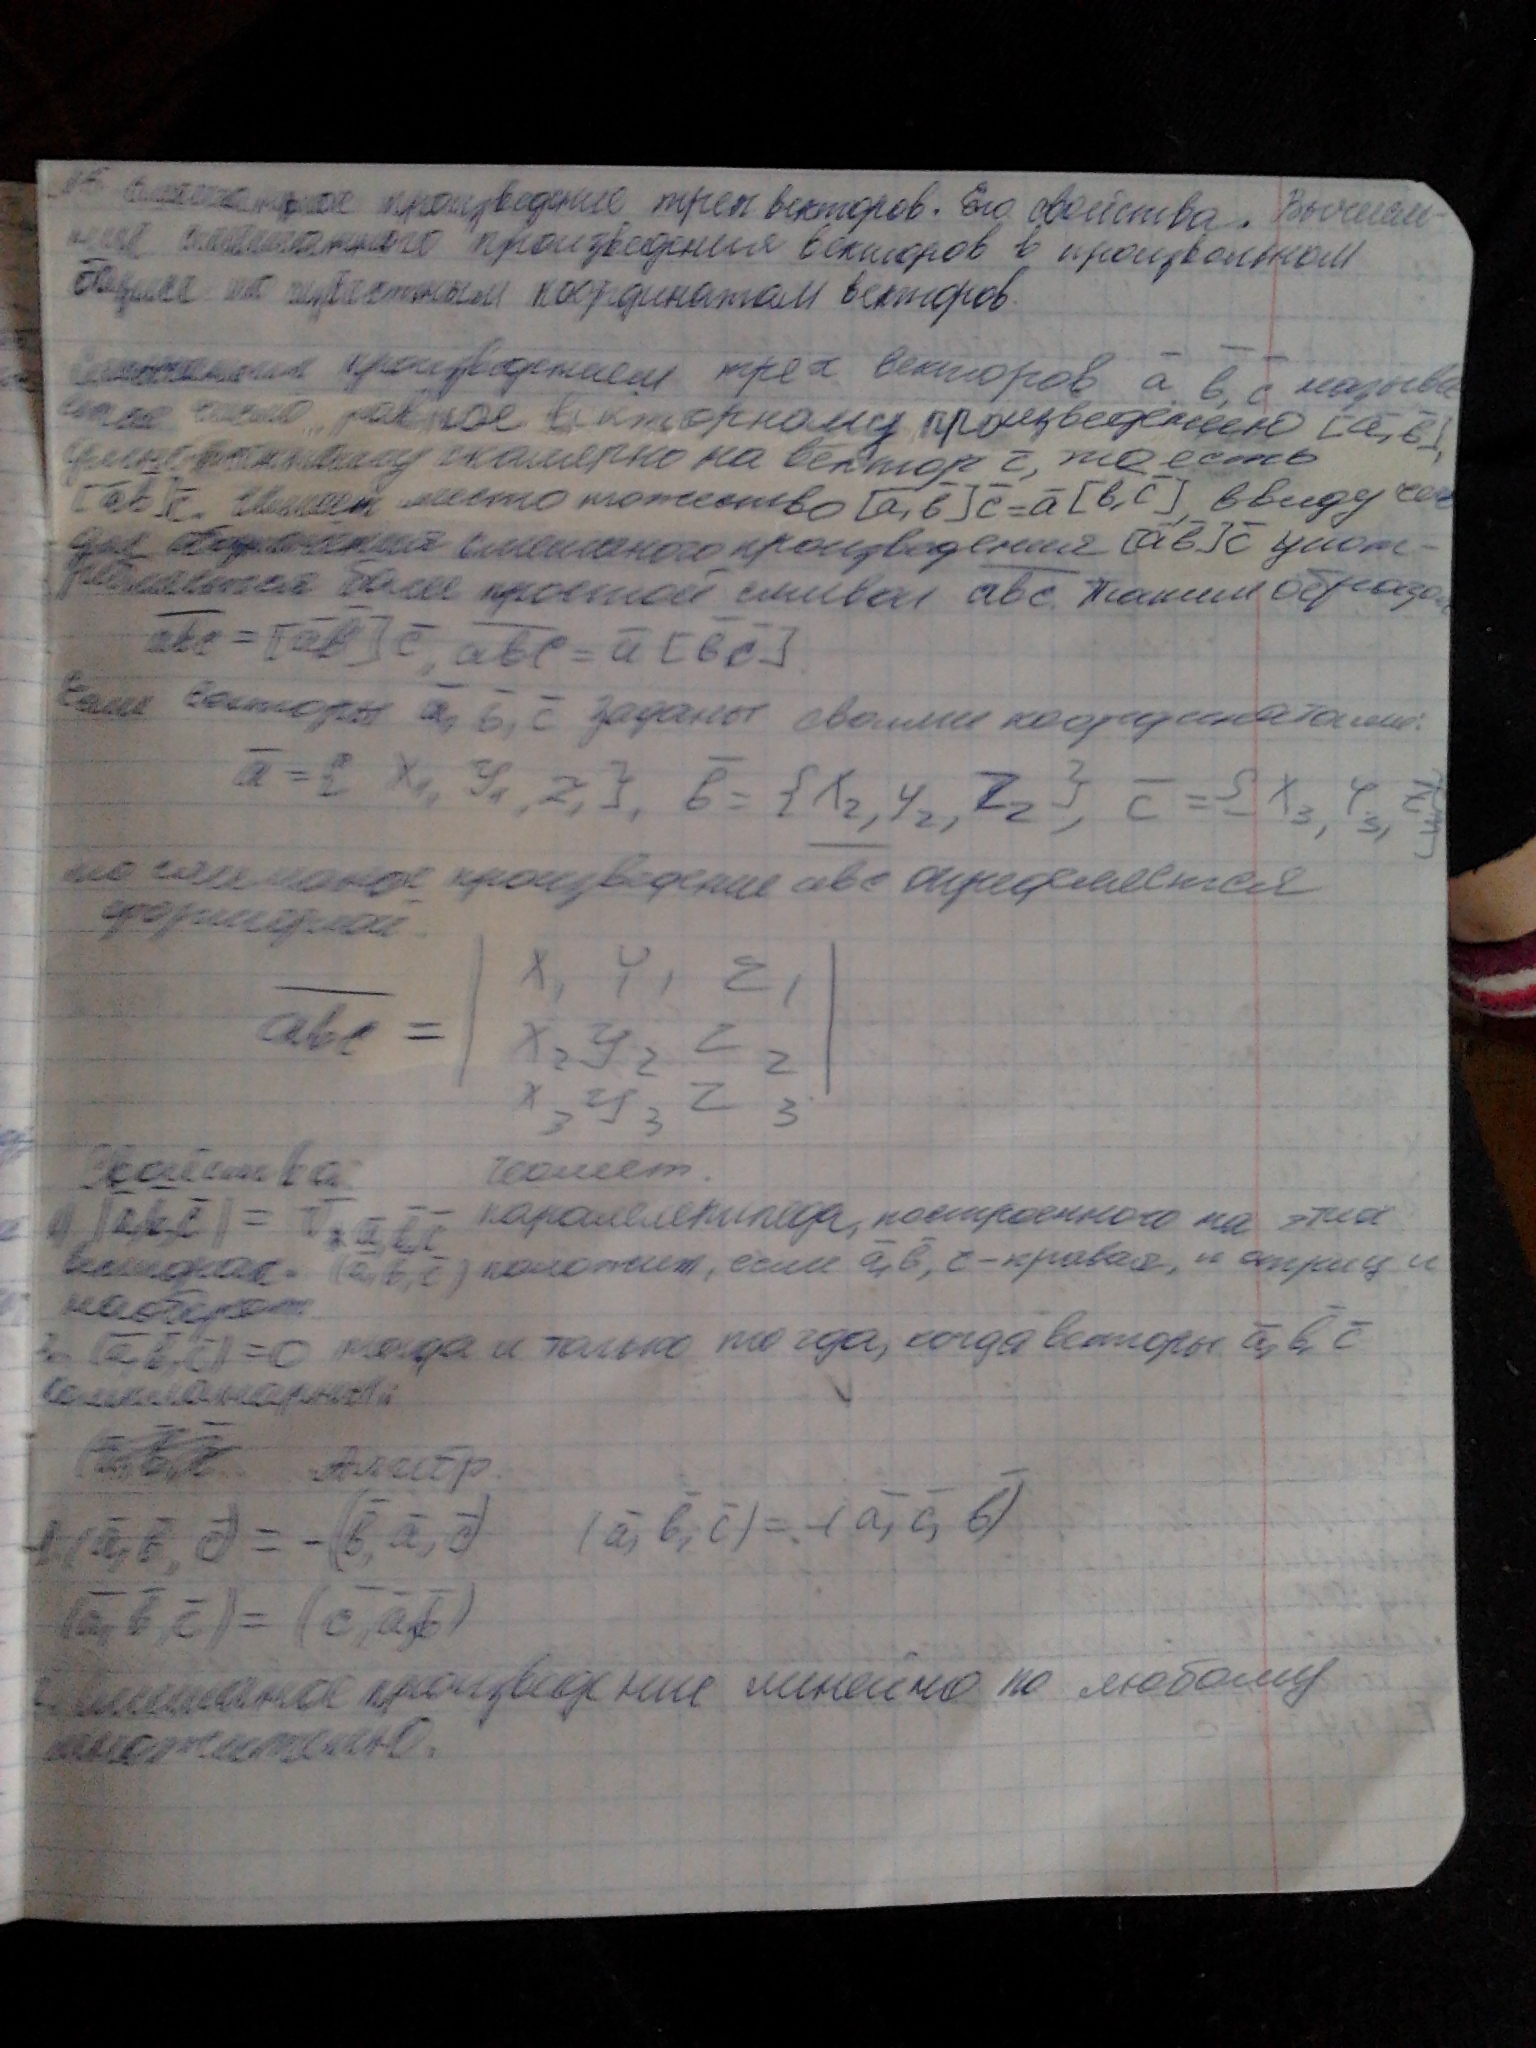 Смешанное произведение трех векторов. Его свойства. Вычисле-
ние смешанного произведения векторов в произвольном
базисе по известным координатам векторов.
Смешанным произведением трех векторов a̅, b̅, c̅ называ
ется число, равное векторному произведению [a̅, b̅],
умноженному скалярно на вектор c̅, то есть
[a̅b̅]c̅. Имеет место тожество [a̅, b̅]c̅ = a̅[b̅, c̅], ввиду чего
для обозначения смешаного произведения [a̅b̅]c̅ упот-
ребляется более простой символ a̅b̅c̅. Таким образом
a̅b̅c̅ = [a̅b̅]c̅, a̅b̅c̅ = a̅[b̅c̅].
Если векторы a̅, b̅, c̅ заданы своими координатами:
a̅ = { X₁, Y₁, Z₁}, b̅ = {X₂, Y₂, Z₂}, c̅ = {X₃, Y₃, Z₃}
то смешаное произведение a̅b̅c̅ определяется
формулой
a̅b̅c̅ = | X₁ Y₁ Z₁ |
X₂ Y₂ Z₂
X₃ Y₃ Z₃
Свойства: геомет.
1) |a̅,b̅,c̅| = V a̅,b̅,c̅ паралелепипеда, построенного на этих
векторах. (a̅,b̅,c̅) положит, если a̅,b̅,c - правая, и отриц и
наоборот.
2. (a̅,b̅,c̅) = 0 тогда и только тогда, когда векторы a̅, b̅, c̅
компланарны.
Алгебр.
1. (a̅, b̅, c̅) = -(b̅, a̅, c̅) (a̅, b̅, c̅) = -(a̅, c̅, b̅)
(a̅, b̅, c̅) = (c̅, a̅, b̅)
2. Смешаное произведение линейно по любому
множителю.